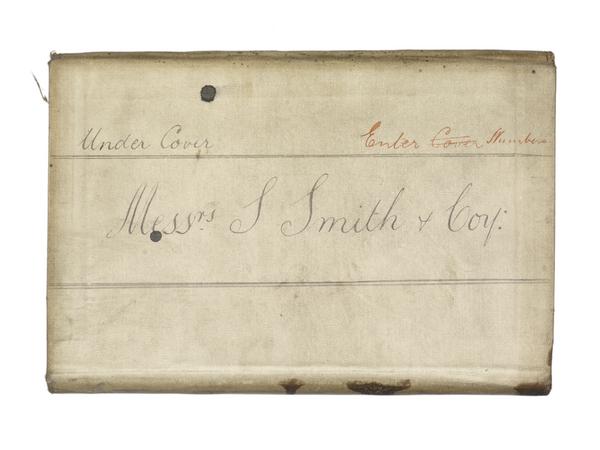 Under Cover Enter Cover Numbers
Messrs S Smith & Coy: